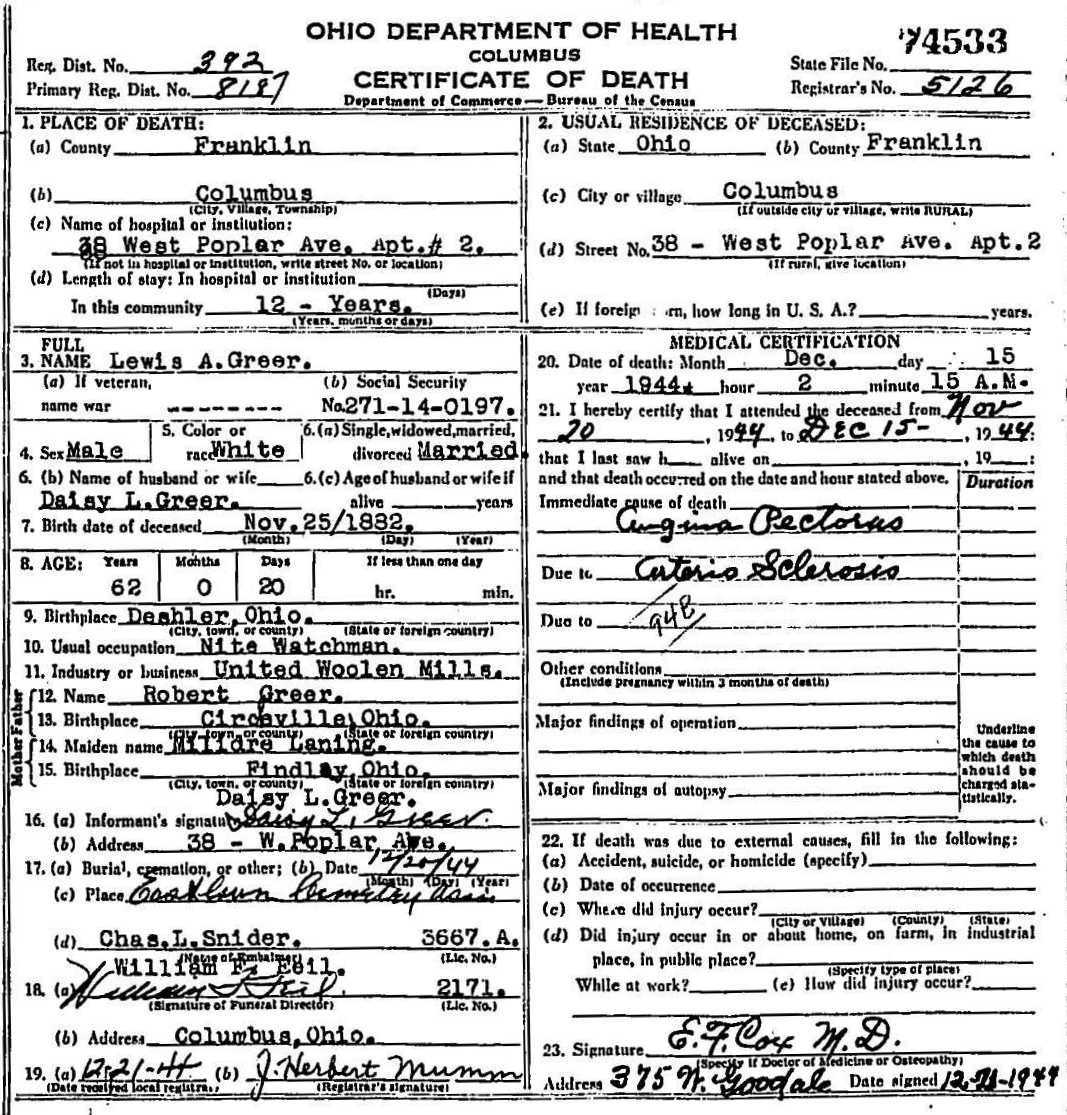 OHIO DEPARTMENT OF HEALTH
COLUMBUS
CERTIFICATE OF DEATH
Department of Commerce — Bureau of the Census
Reg. Dist. No. 392
Primary Reg. Dist. No. 8187
74533
State File No.
Registrar's No. 5126
1. PLACE OF DEATH:
(a) County Franklin
(b) Columbus
(City, Village, Township)
(c) Name of hospital or institution:
38 West Poplar Ave. Apt.# 2.
(If not in hospital or institution, write street No. or location)
(d) Length of stay: In hospital or institution
(Days)
In this community 12 - Years.
(Years, months or days)
2. USUAL RESIDENCE OF DECEASED:
(a) State Ohio (b) County Franklin
(c) City or village Columbus
(If outside city or village, write RURAL)
(d) Street No. 38 - West Poplar Ave. Apt.2
(If rural, give location)
(e) If foreign rn, how long in U. S. A.? years.
3. FULL NAME Lewis A.Greer.
(a) If veteran, name war -------
(b) Social Security No. 271-14-0197.
4. Sex Male
5. Color or race White
6. (a) Single, widowed, married, divorced Married.
6. (b) Name of husband or wife
Daisy L.Greer.
6. (c) Age of husband or wife if alive years
7. Birth date of deceased Nov.25/1882.
(Month) (Day) (Year)
8. AGE: Years Months Days If less than one day
62 0 20 hr. min.
9. Birthplace Deshler,Ohio.
(City, town, or county) (State or foreign country)
10. Usual occupation Nite Watchman.
11. Industry or business United Woolen Mills.
Father
12. Name Robert Greer.
13. Birthplace Circeville,Ohio.
(City, town, or county) (State or foreign country)
Mother
14. Maiden name Milldre Laning.
15. Birthplace Findlay,Ohio.
(City, town, or county) (State or foreign country)
Daisy L.Greer.
16. (a) Informant's signature Daisy L. Greer.
(b) Address 38 - W.Poplar Ave.
17. (a) Burial, cremation, or other; (b) Date 12/20/44
(Month) (Day) (Year)
(c) Place Eastlawn Cemetery Assn.
(d) Chas.L.Snider. 3667.A.
(Name of Embalmer) (Lic. No.)
William F. Eeil.
18. (a) William F. Keil. 2171.
(Signature of Funeral Director) (Lic. No.)
(b) Address Columbus,Ohio.
19. (a) 12-21-44 (b) J. Herbert Mumm
(Date received local registrar) (Registrar's signature)
MEDICAL CERTIFICATION
20. Date of death: Month Dec. day 15
year 1944. hour 2 minute 15 A.M.
21. I hereby certify that I attended the deceased from Nov
20, 1944, to DEC 15-, 1944:
that I last saw h alive on , 19 :
and that death occurred on the date and hour stated above.
Duration
Immediate cause of death
Angina Pectorus
Due to Arterio Sclerosis
Due to 94B
Other conditions
(Include pregnancy within 3 months of death)
Major findings of operation
Major findings of autopsy
Underline
the cause to
which death
should be
charged sta-
tistically.
22. If death was due to external causes, fill in the following:
(a) Accident, suicide, or homicide (specify)
(b) Date of occurrence
(c) Where did injury occur?
(City or Village) (County) (State)
(d) Did injury occur in or about home, on farm, in industrial
place, in public place?
(Specify type of place)
While at work? (e) How did injury occur?
23. Signature E. F. Cox M. D.
(Specify if Doctor of Medicine or Osteopathy)
Address 375 W. Goodale Date signed 12- -1944